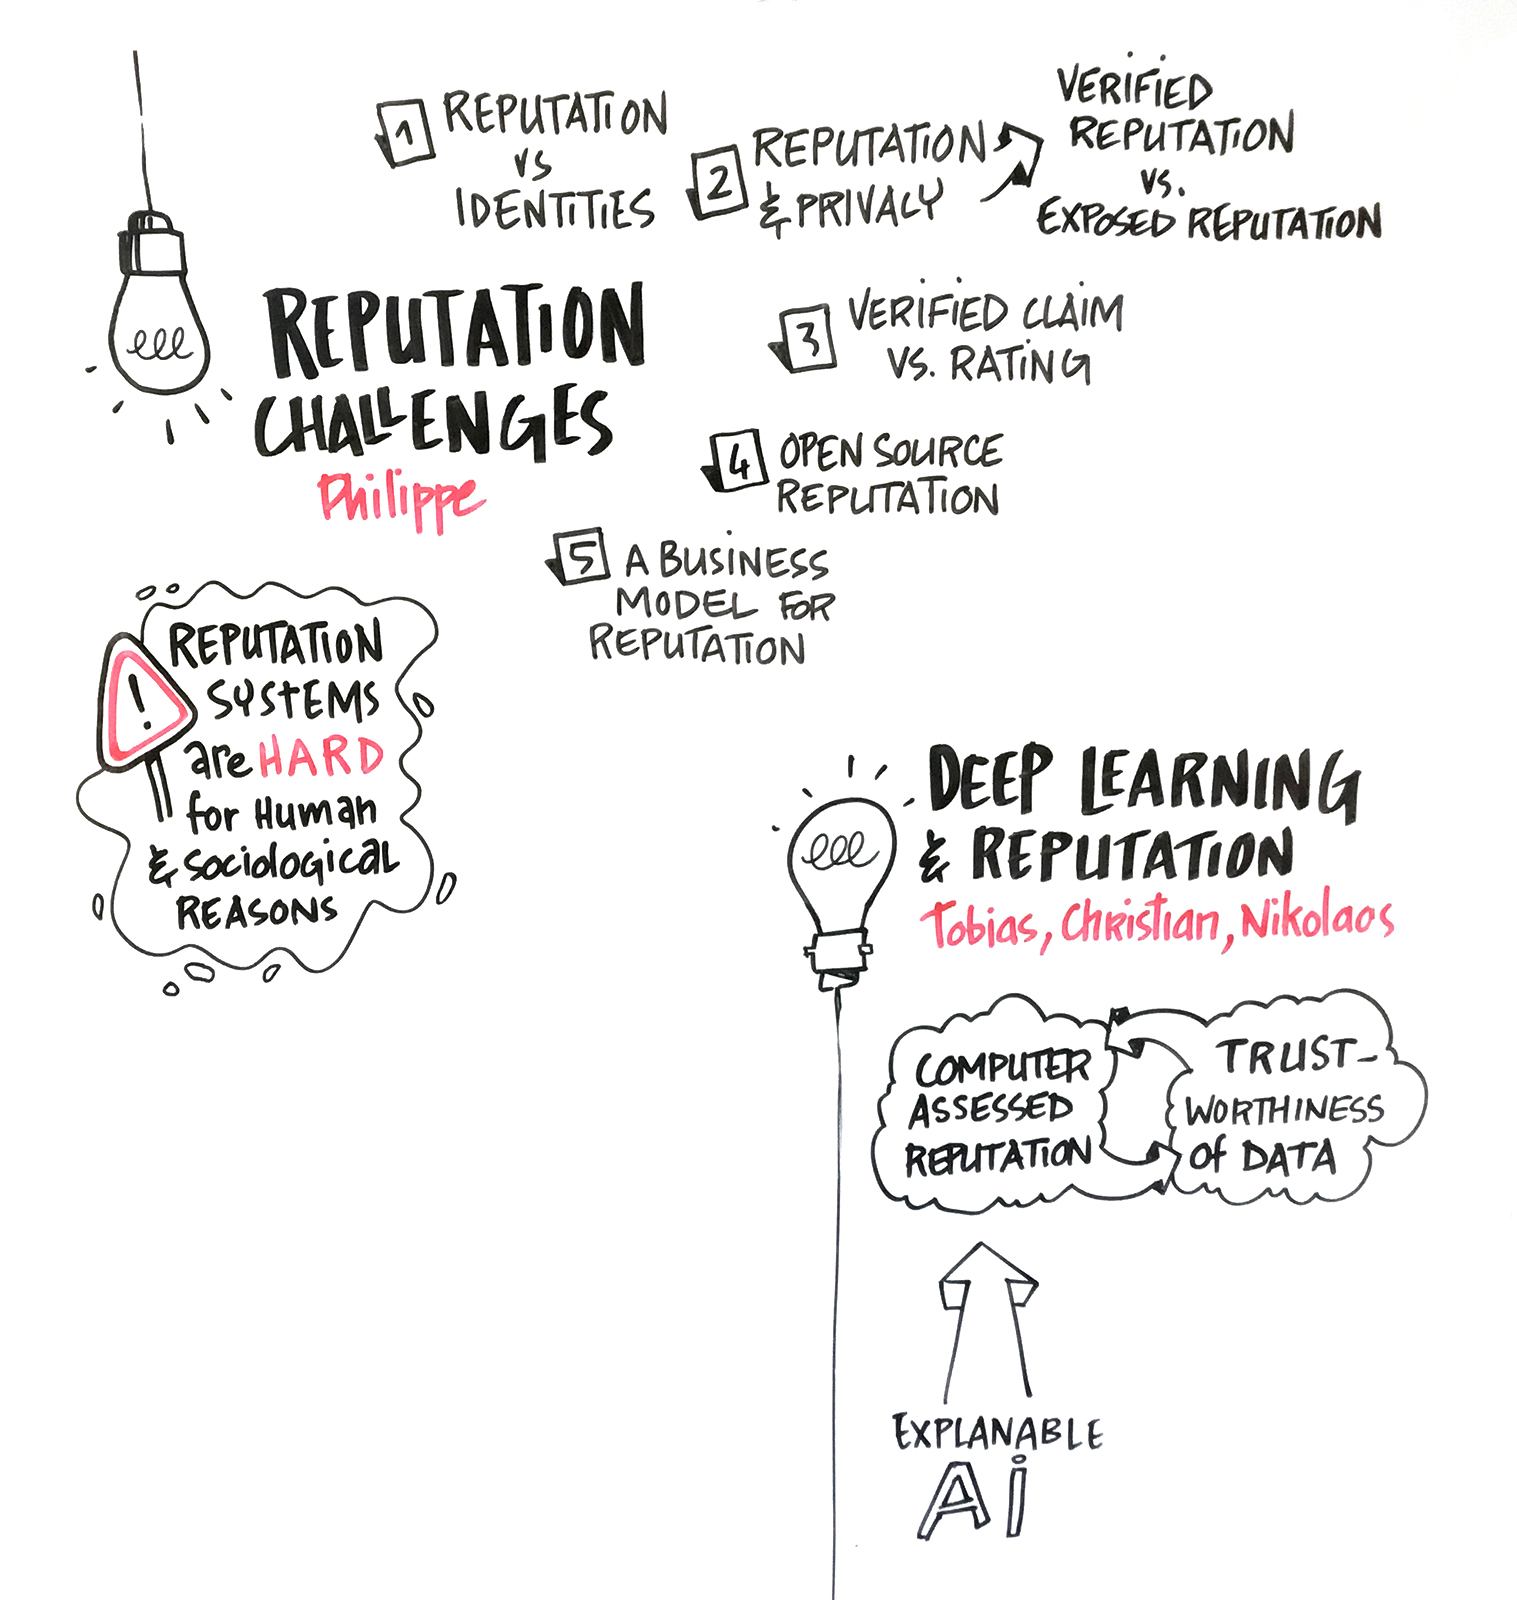 1 REPUTATION
vs
IDENTITIES
2 REPUTATION
& PRIVACY
VERIFIED
REPUTATION
vs.
EXPOSED REPUTATION
REPUTATION
CHALLENGES
Philippe
3 VERIFIED CLAIM
VS. RATING
4 OPEN SOURCE
REPUTATION
5 A BUSINESS
MODEL FOR
REPUTATION
!
REPUTATION
SYSTEMS
are HARD
for Human
& Sociological
REASONS
DEEP LEARNING
& REPUTATION
Tobias, Christian, Nikolaos
COMPUTER
ASSESSED
REPUTATION
TRUST-
WORTHINESS
of DATA
EXPLANABLE
Ai